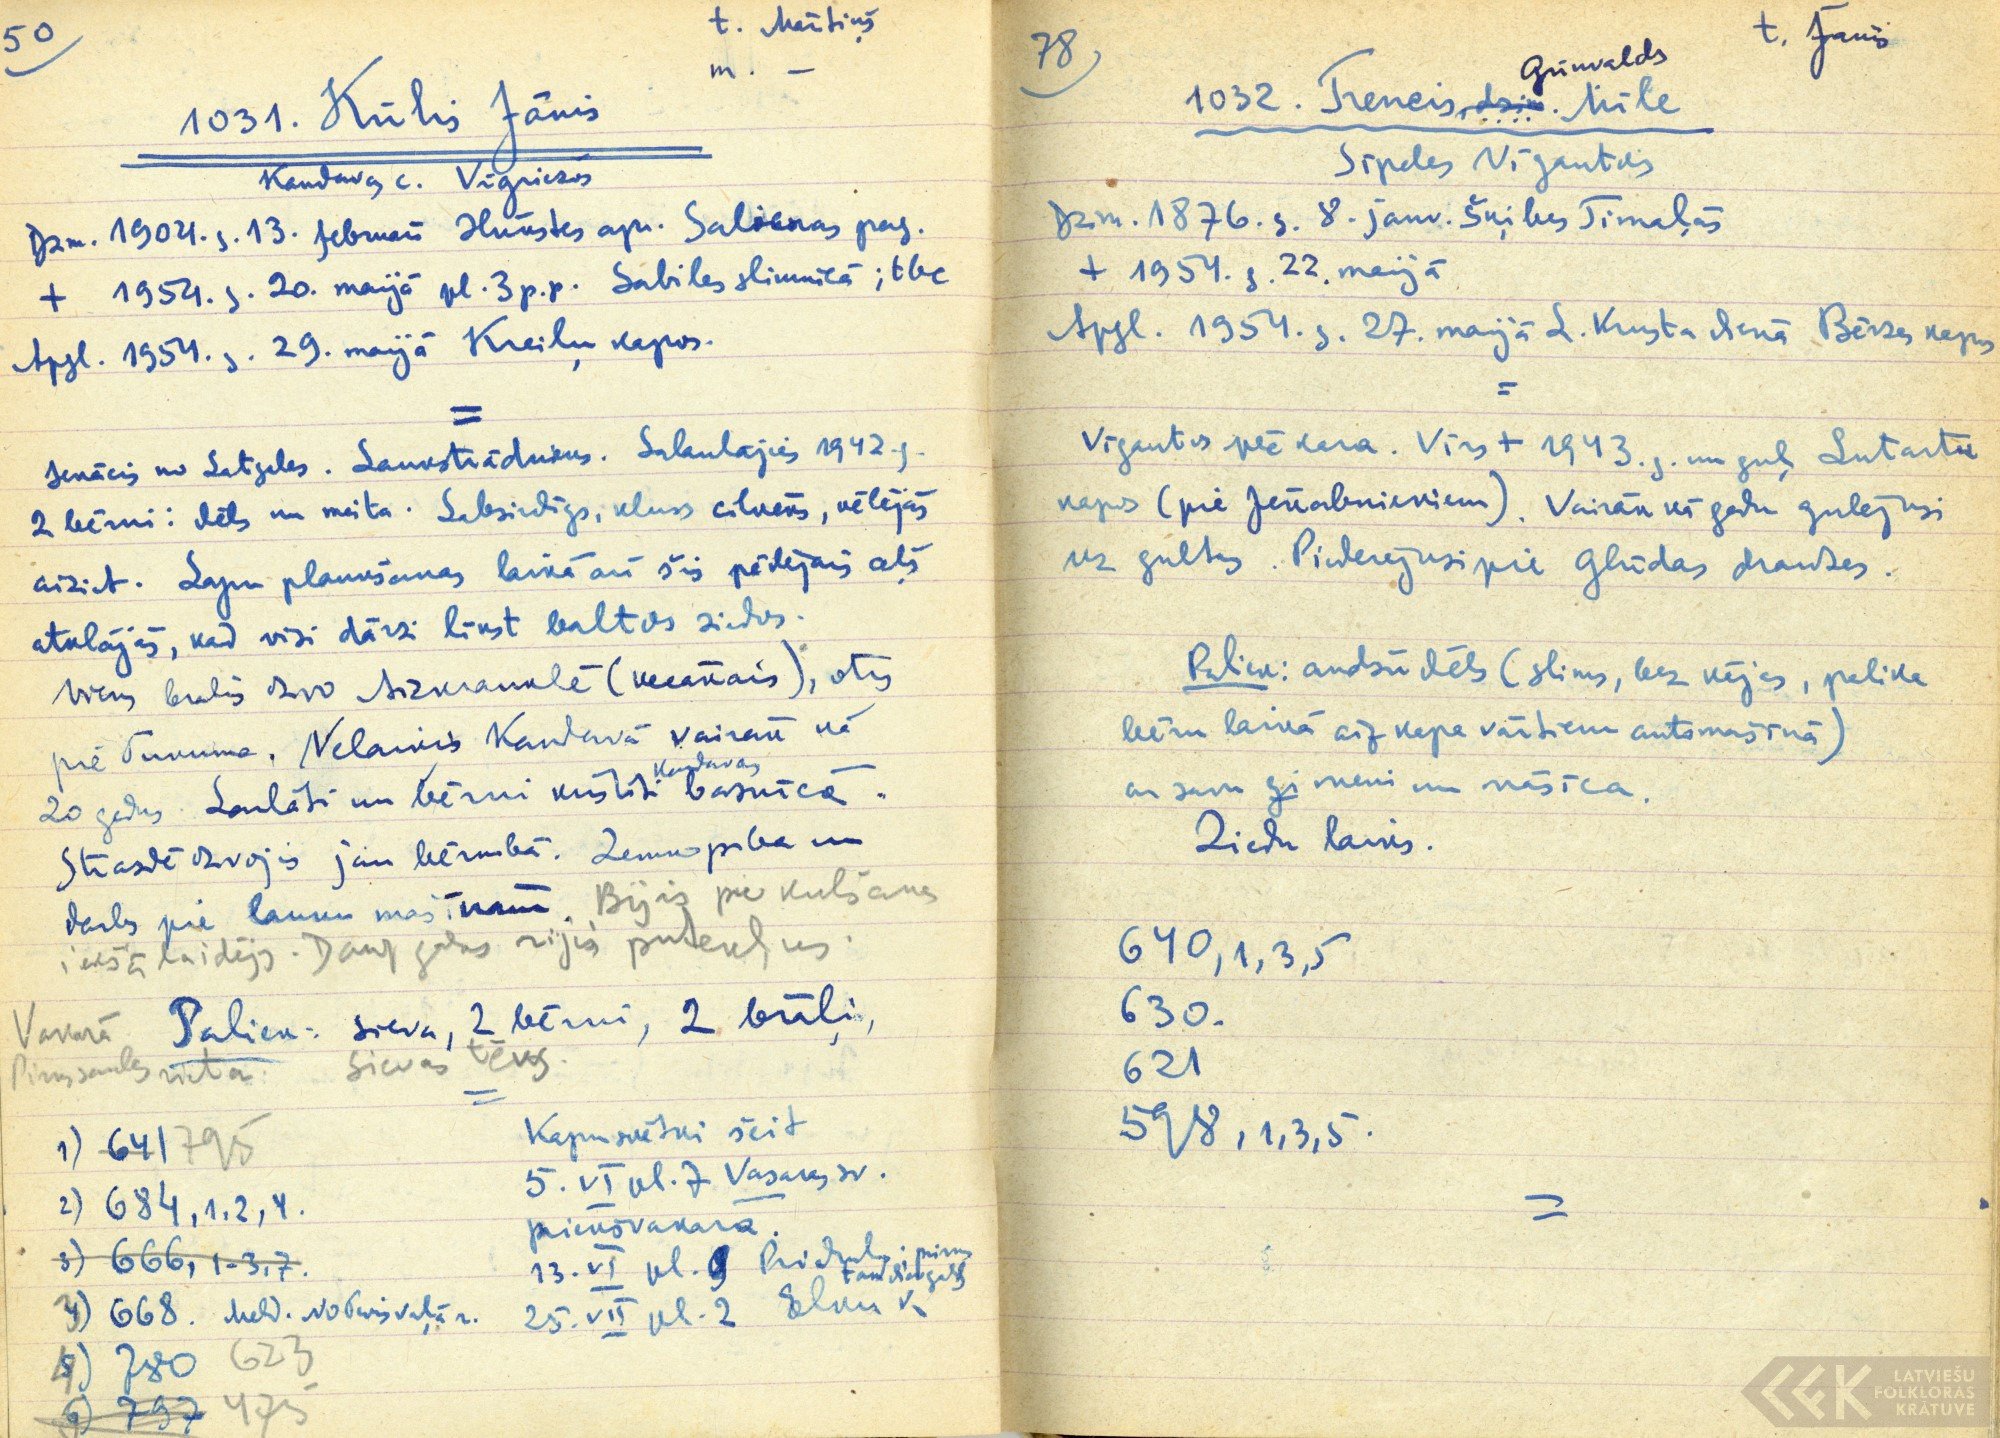 50
t. Mārtiņš
m. –
1031. Kūlis Jānis
Kandavas c. Vīgriezēs
Dzm. 1904. g. 13. februārī Ilūkstes apr. Salienas pag.
+ 1954. g. 20. maijā pl. 3 p.p. Sabiles slimnīcā; tbc
Apgl. 1954. g. 29. maijā Kreiļu kapos.
=
Ienācis no Latgales. Laukstrādnieks. Salaulājies 1942. g.
2 bērni: dēls un meita. Labsirdīgs, kluss cilvēks, cēlējās
aiziet. Lapu plaukšanas laikā arī šis pēdējais ceļš
atklājās, kad visi dārzi līkst baltos ziedos.
Viens brālis dzīvo Aizkrauklē (vecākais), otrs
pie Tukuma. Nelaiķis Kandavā vairāk kā
20 gadus. Laulāti un bērni kristīti Kandavas baznīcā.
Strazdē dzīvojis jau bērnībā. Zemkopība un
darbs pie lauku mašīnām. Bijis pie kulšanas
iekšā laidējs. Daudz gadus rijis putekļus.
Vakarā
Pirms saules rieta.
Paliek: sieva, 2 bērni, 2 brāļi,
sievas tēvs.
=
1) 641 795
2) 684, 1, 2, 4.
3) 666, 1-3, 7.
4) 668. Mel. No Tevis vaļā r.
5) 780 623
6) 797 475
Kapu svētki šeit
5. VI pl. 7 Vasaras sv.
priekšvakarā.
13. VI pl. 9 pirms
25. VII pl. 2 Elku k.
78
t. Jānis
Grīnvalds
1032. Trencis, dzim. Mīle
Sīpeles Vīgantos
Dzim. 1876. g. 8. janv. Šķibes Timaļās
+ 1954. g. 22. maijā
Apgl. 1954. g. 27. maijā L. Krusta dienā Bērzes kapos
=
Vīgantos pēc kara. Vīrs + 1943. g. un guļ Lutartu
kapos (pie Jēkabniekiem). Vairāk kā gadu gulējusi
uz gultas. Piederējusi pie Glūdas draudzes.
Paliek: audžu dēls (slims, bez kājas, palika
bēru laikā aiz kapa vārtiem automašīnā)
ar savu ģimeni un māsīca.
Ziedu laiks.
640, 1, 3, 5
630.
621
598, 1, 3, 5.
=
LATVIEŠU
FOLKLORAS
KRĀTUVE